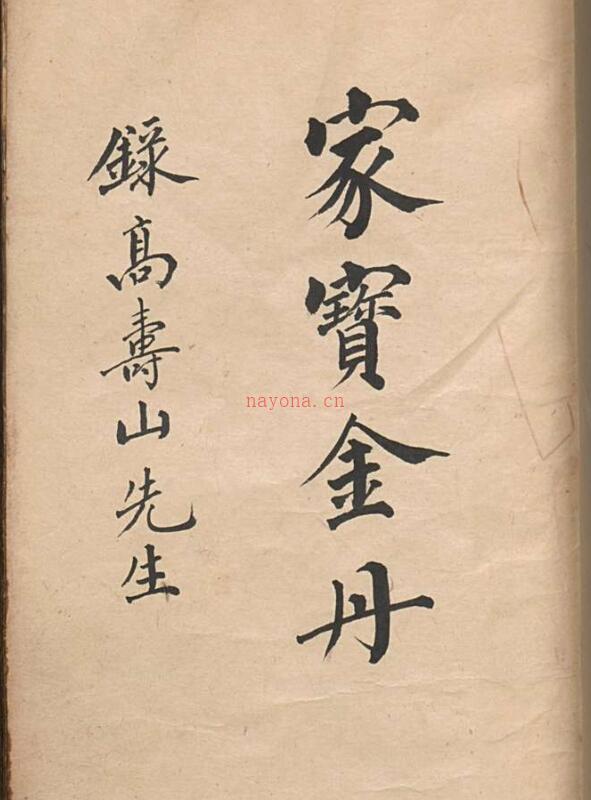 家寶金丹
錄高壽山先生
nayona.cn